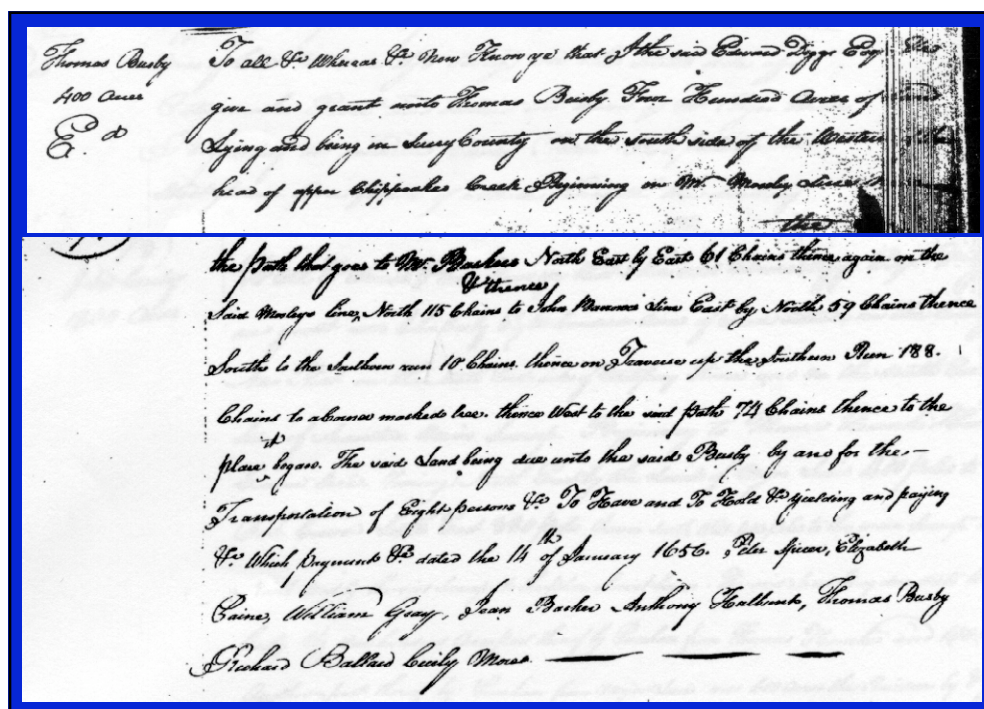 Thomas Busby
400 Acres
Ed
To all &c Whereas &c Now Know ye that I the said Edward Digge Esqr.
give and grant unto Thomas Busby Four Hundred Acres of Land
Lying and being in Surry County on the south side of the Western
head of upper Chippoakes Creek Beginning on Mr. Mosely Line
the
the path that goes to Mr. Barkers North East by East 61 Chains thence again on the
& thence
Said Mosleys line, North 115 Chains to John Line East by North 59 Chains thence
South to the Southern run 10 Chains. thence on Traverse up the Southern Run 188.
Chains to a marked tree. thence West to the said path 74 Chains thence to the
it
place began. The said Land being due unto the said Busby by and for the
Transportation of Eight persons &c To Have and To Hold &c yielding and paying
&c Which payment &c dated the 14th of January 1656. Peter Spicer, Elizabeth
Caine, William Gray, Jean Barker Anthony Thomas Busby
Richard Ballard Cecily